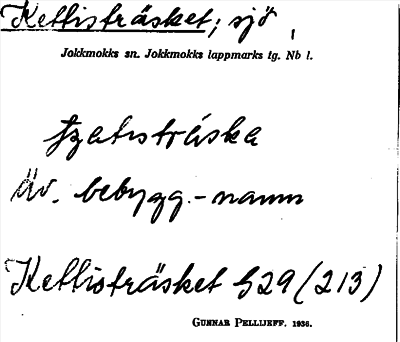 Kettisträsket; sjö
Jokkmokks sn. Jokkmokks lappmarks tg. Nb l.
träska
äv. bebygg.-namn
Kettisträsket S29 (213)
GUNNAR PELLIJEFF. 1936.